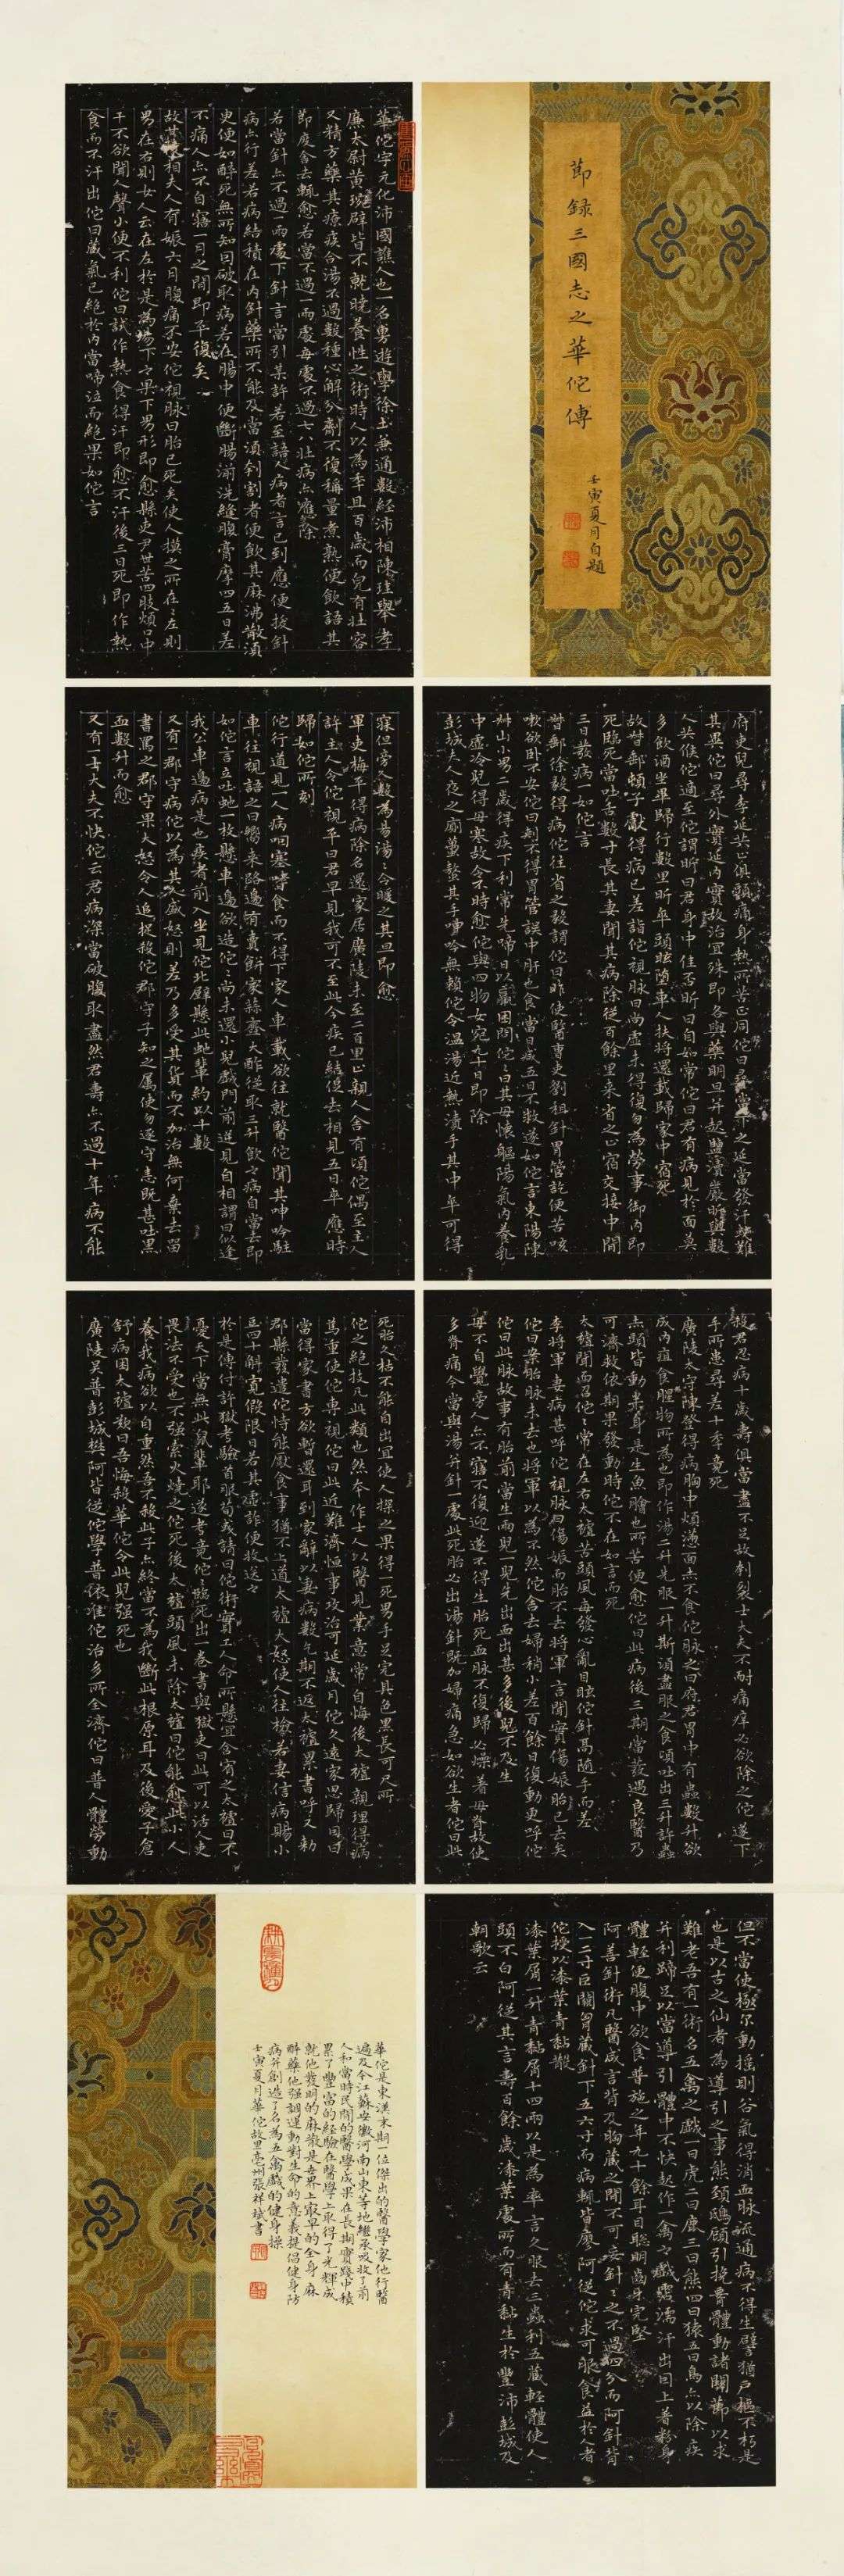 節錄三國志之華佗傳
壬寅夏月自題
華佗字元化沛國譙人也一名旉遊學徐土兼通數經沛相陳珪舉孝
廉太尉黃琬辟皆不就曉養性之術時人以為年且百歲而皃有壯容
又精方藥其療疾合湯不過數種心解分劑不復稱量煮熟便飲語其
節度舍去輒愈若當不過一兩處每處不過七八壯病亦應除
若當針亦不過一兩處下針言當引某許若至語人病者言已到應便拔針
病亦行差若病結積在內針藥所不能及當須刳割者便飲其麻沸散須
臾便如醉死無所知因破取病若在腸中便斷腸湔洗縫腹膏摩四五日差
不痛人亦不自寤一月之間即平復矣
故甘陵相夫人有娠六月腹痛不安佗視脉曰胎已死矣使人摸之所在〻左則
男在右則女人云在左於是為湯下之果下男形即愈縣吏尹世苦四肢煩口中
干不欲聞人聲小便不利佗曰試作熱食得汗即愈不汗後三日死即作熱
食而不汗出佗曰藏氣已絕於內當啼泣而絕果如佗言
府吏兒尋李延共止俱頭痛身熱所苦正同佗曰尋當下之延當發汗或難
其異佗曰尋外實延內實故治宜殊即各與藥明旦并起鹽瀆嚴昕與數
人共候佗適至佗謂昕曰君身中佳否昕曰自如常佗曰君有病見於面莫
多飲酒坐畢歸行數里昕卒頭眩墮車人扶將還載歸家中宿死
故督郵頓子獻得病已差詣佗視脉曰尚虛未得復勿為勞事御內即
死臨死當吐舌數寸長其妻聞其病除從百餘里來省之止宿交接中間
三日發病一如佗言
督郵徐毅得病佗往省之毅謂佗曰昨使醫曹吏劉租針胃管訖便苦咳
嗽欲臥不安佗曰刺不得胃管誤中肝也食當日減五日不救遂如佗言東陽陳
叔山小男二歲得疾下利常先啼日以羸困問佗〻曰其母懷軀陽氣內養乳
中虛冷兒得母寒故令不時愈佗與四物女宛丸十日即除
彭城夫人夜之廁蠆螫其手呻吟無賴佗令溫湯近熱漬手其中卒可得
寐但旁人數為易湯〻令暖之其旦即愈
軍吏梅平得病除名還家居廣陵未至二百里止親人舍有頃佗偶至主人
許主人令佗視平曰君早見我可不至此今疾已結促去相見五日卒應時
歸如佗所刻
佗行道見一人病咽塞嗜食而不得下家人車載欲往就醫佗聞其呻吟駐
車往視語之曰嚮來路邊有賣餅家蒜齏大酢從取三升飲之病自當去即
如佗言立吐虵一枚懸車邊欲造佗〻尚未還小兒戲門前逆見自相謂曰似逢
我公車邊病是也疾者前入坐見佗北壁懸此虵輩約以十數
又有一郡守病佗以為其人盛怒則差乃多受其貨而不加治無何棄去留
書罵之郡守果大怒令人追捉殺佗郡守子知之屬使勿逐守恚既甚吐黑
血數升而愈
又有一士大夫不快佗云君病深當破腹取盡然君壽亦不過十年病不能
殺君忍病十歲壽俱當盡不足故刳裂士大夫不耐痛癢必欲除之佗遂下
手所患尋差十年竟死
廣陵太守陳登得病胸中煩懣面赤不食佗脉之曰府君胃中有蟲數升欲
成內疽食腥物所為也即作湯二升先服一升斯須盡服之食頃吐出三升許蟲
赤頭皆動半身是生魚膾也所苦便愈佗曰此病後三期當發遇良醫乃
可濟救依期果發動時佗不在如言而死
太祖聞而召佗〻常在左右太祖苦頭風每發心亂目眩佗針鬲隨手而差
李將軍妻病甚呼佗視脉曰傷娠而胎不去將軍言聞實傷娠胎已去矣
佗曰案胎脉未去也將軍以為不然佗舍去婦稍小差百餘日復動更呼佗
佗曰此脉故事有胎前當生兩兒一兒先出血出甚多後兒不及生
母不自覺旁人亦不寤不復迎遂不得生胎死血脉不復歸必燥著母脊故使
多脊痛今當與湯并針一處此死胎必出湯針既加婦痛急如欲生者佗曰此
死胎久枯不能自出宜使人探之果得一死男手足完具色黑長可尺所
佗之絕技凡此類也然本作士人以醫見業意常自悔後太祖親理得病
篤重使佗專視佗曰此近難濟恆事攻治可延歲月佗久遠家思歸因曰
當得家書方欲暫還耳到家辭以妻病數乞期不返太祖累書呼又勅
郡縣發遣佗恃能厭食事猶不上道太祖大怒使人往檢若妻信病賜小
豆四十斛寬假限日若其虛詐便收送之
於是傳付許獄考驗首服荀彧請曰佗術實工人命所懸宜含宥之太祖曰不
憂天下當無此鼠輩耶遂考竟佗〻臨死出一卷書與獄吏曰此可以活人吏
畏法不受佗亦不強索火燒之佗死後太祖頭風未除太祖曰佗能愈此小人
養我病欲以自重然吾不殺此子亦終當不為我斷此根原耳及後愛子倉
舒病困太祖歎曰吾悔殺華佗令此兒強死也
廣陵吳普彭城樊阿皆從佗學普依准佗治多所全濟佗曰普人體勞動
但不當使極尔動搖則谷氣得消血脉流通病不得生譬猶戶樞不朽是
也是以古之仙者為導引之事熊頸鴟顧引挽腰體動諸關節以求
難老吾有一術名五禽之戲一曰虎二曰鹿三曰熊四曰猿五曰鳥亦以除疾
并利蹄足以當導引體中不快起作一禽之戲霑濡汗出因上著粉身
體輕便腹中欲食普施之年九十餘耳目聰明齒牙完堅
阿善針術凡醫咸言背及胸藏之間不可妄針〻之不過四分而阿針背
入一二寸巨闕胸藏針下五六寸而病輒皆廖阿從佗求可服食益於人者
佗授以漆葉青黏散
漆葉屑一升青黏屑十四兩以是為率言久服去三蟲利五藏輕體使人
頭不白阿從其言壽百餘歲漆葉處所而有青黏生於豐沛彭城及
朝歌云
華佗是東漢末期一位傑出的醫學家他行醫
遍及今江蘇安徽河南山東等地繼承吸收了前
人和當時民間的醫學成果在長期實踐中積
累了豐富的經驗在醫學上取得了光輝成
就他發明的麻散是世界上最早的全身麻
醉藥他強調運動對生命的意義提倡健身防
病并創造了名為五禽戲的健身操
壬寅夏月華佗故里亳州張祥斌書